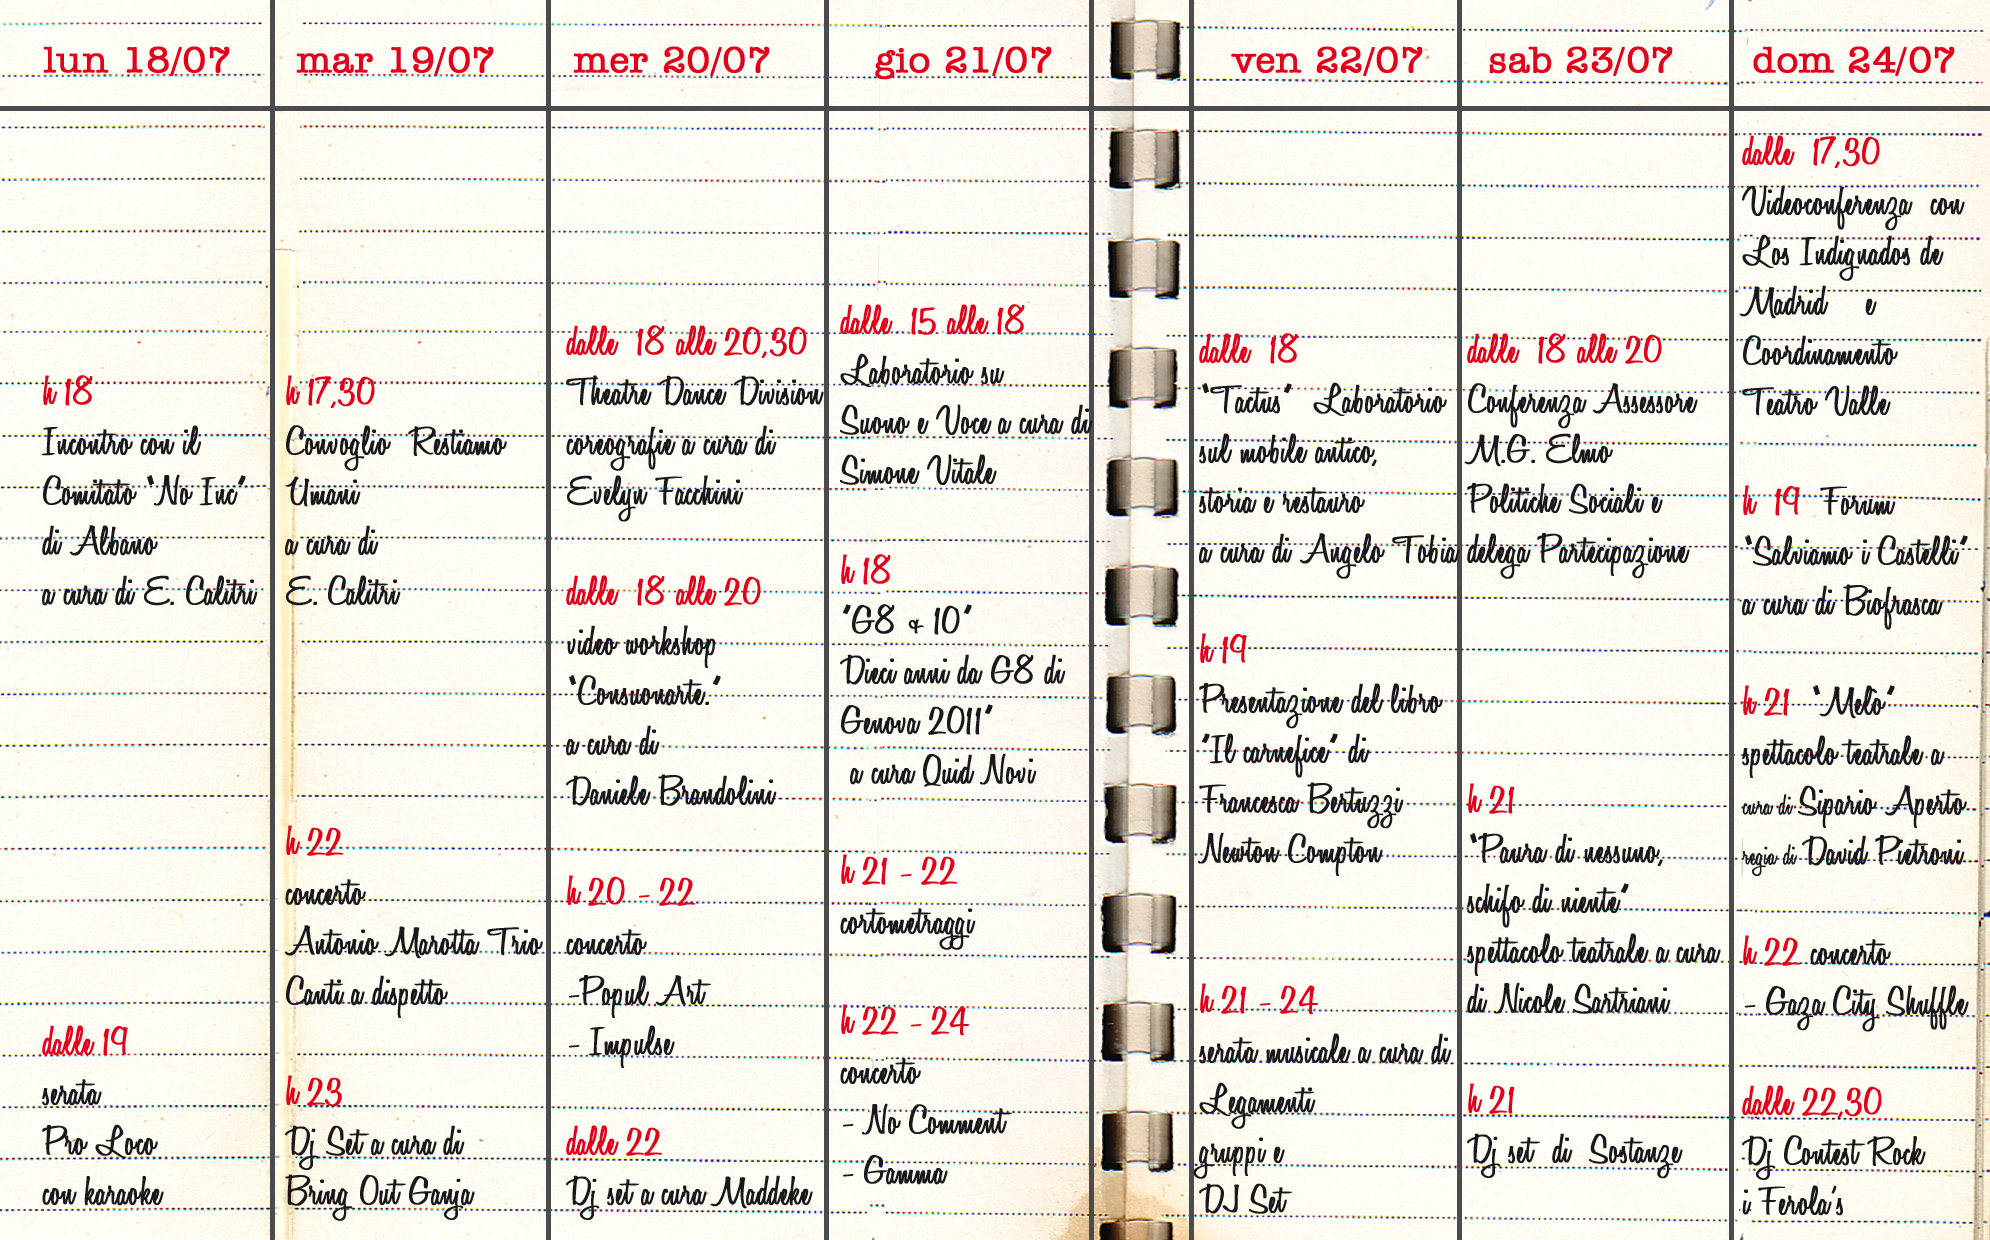 lun 18/07
h 18
Incontro con il
Comitato "No Inc"
di Albano
a cura di E. Calitri
dalle 19
serata
Pro Loco
con karaoke
mar 19/07
h 17,30
Convoglio Restiamo
Umani
a cura di
E. Calitri
h 22
concerto
Antonio Marotta Trio
Canti a dispetto
h 23
Dj Set a cura di
Bring Out Ganja
mer 20/07
dalle 18 alle 20,30
Theatre Dance Division
coreografie a cura di
Evelyn Facchini
dalle 18 alle 20
video workshop
"Consuonarte."
a cura di
Daniele Brandolini
h 20 - 22
concerto
-Popul Art
- Impulse
dalle 22
Dj set a cura Maddeke
gio 21/07
dalle 15 alle 18
Laboratorio su
Suono e Voce a cura di
Simone Vitale
h 18
"G8 & 10"
Dieci anni da G8 di
Genova 2011"
a cura Quid Novi
h 21 - 22
cortometraggi
h 22 - 24
concerto
- No Comment
- Gamma
ven 22/07
dalle 18
"Tactus" Laboratorio
sul mobile antico,
storia e restauro
a cura di Angelo Tobia
h 19
Presentazione del libro
"Il carnefice" di
Francesca Bertuzzi
Newton Compton
h 21 - 24
serata musicale a cura di
Legamenti
gruppi e
DJ Set
sab 23/07
dalle 18 alle 20
Conferenza Assessore
M.G. Elmo
Politiche Sociali e
delega Partecipazione
h 21
"Paura di nessuno,
schifo di niente"
spettacolo teatrale a cura
di Nicole Sartriani
h 21
Dj set di Sostanze
dom 24/07
dalle 17,30
Videoconferenza con
Los Indignados de
Madrid e
Coordinamento
Teatro Valle
h 19 Forum
"Salviamo i Castelli"
a cura di Biofrasca
h 21 "Melò"
spettacolo teatrale a
cura di Sipario Aperto
regia di David Pietroni
h 22 concerto
- Gaza City Shuffle
dalle 22,30
Dj Contest Rock
i Ferola's